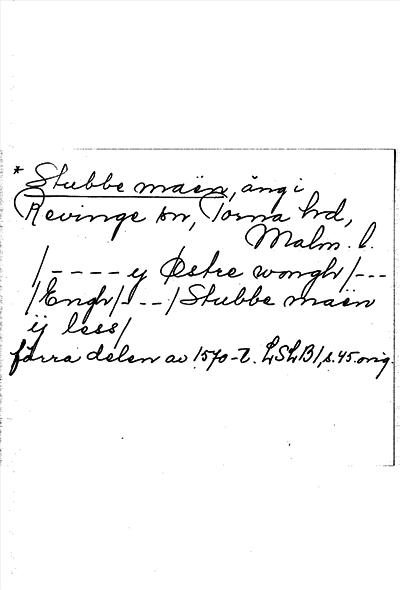 * Stubbe maën, äng i
Revinge sn, Torna hd,
Malm. l.
/ - - - - y Østre wongh / - - -
/ Engh / - - - / Stubbe maën
ÿ less /
förra delen av 1570-t. LSLB1, s. 45. orig.